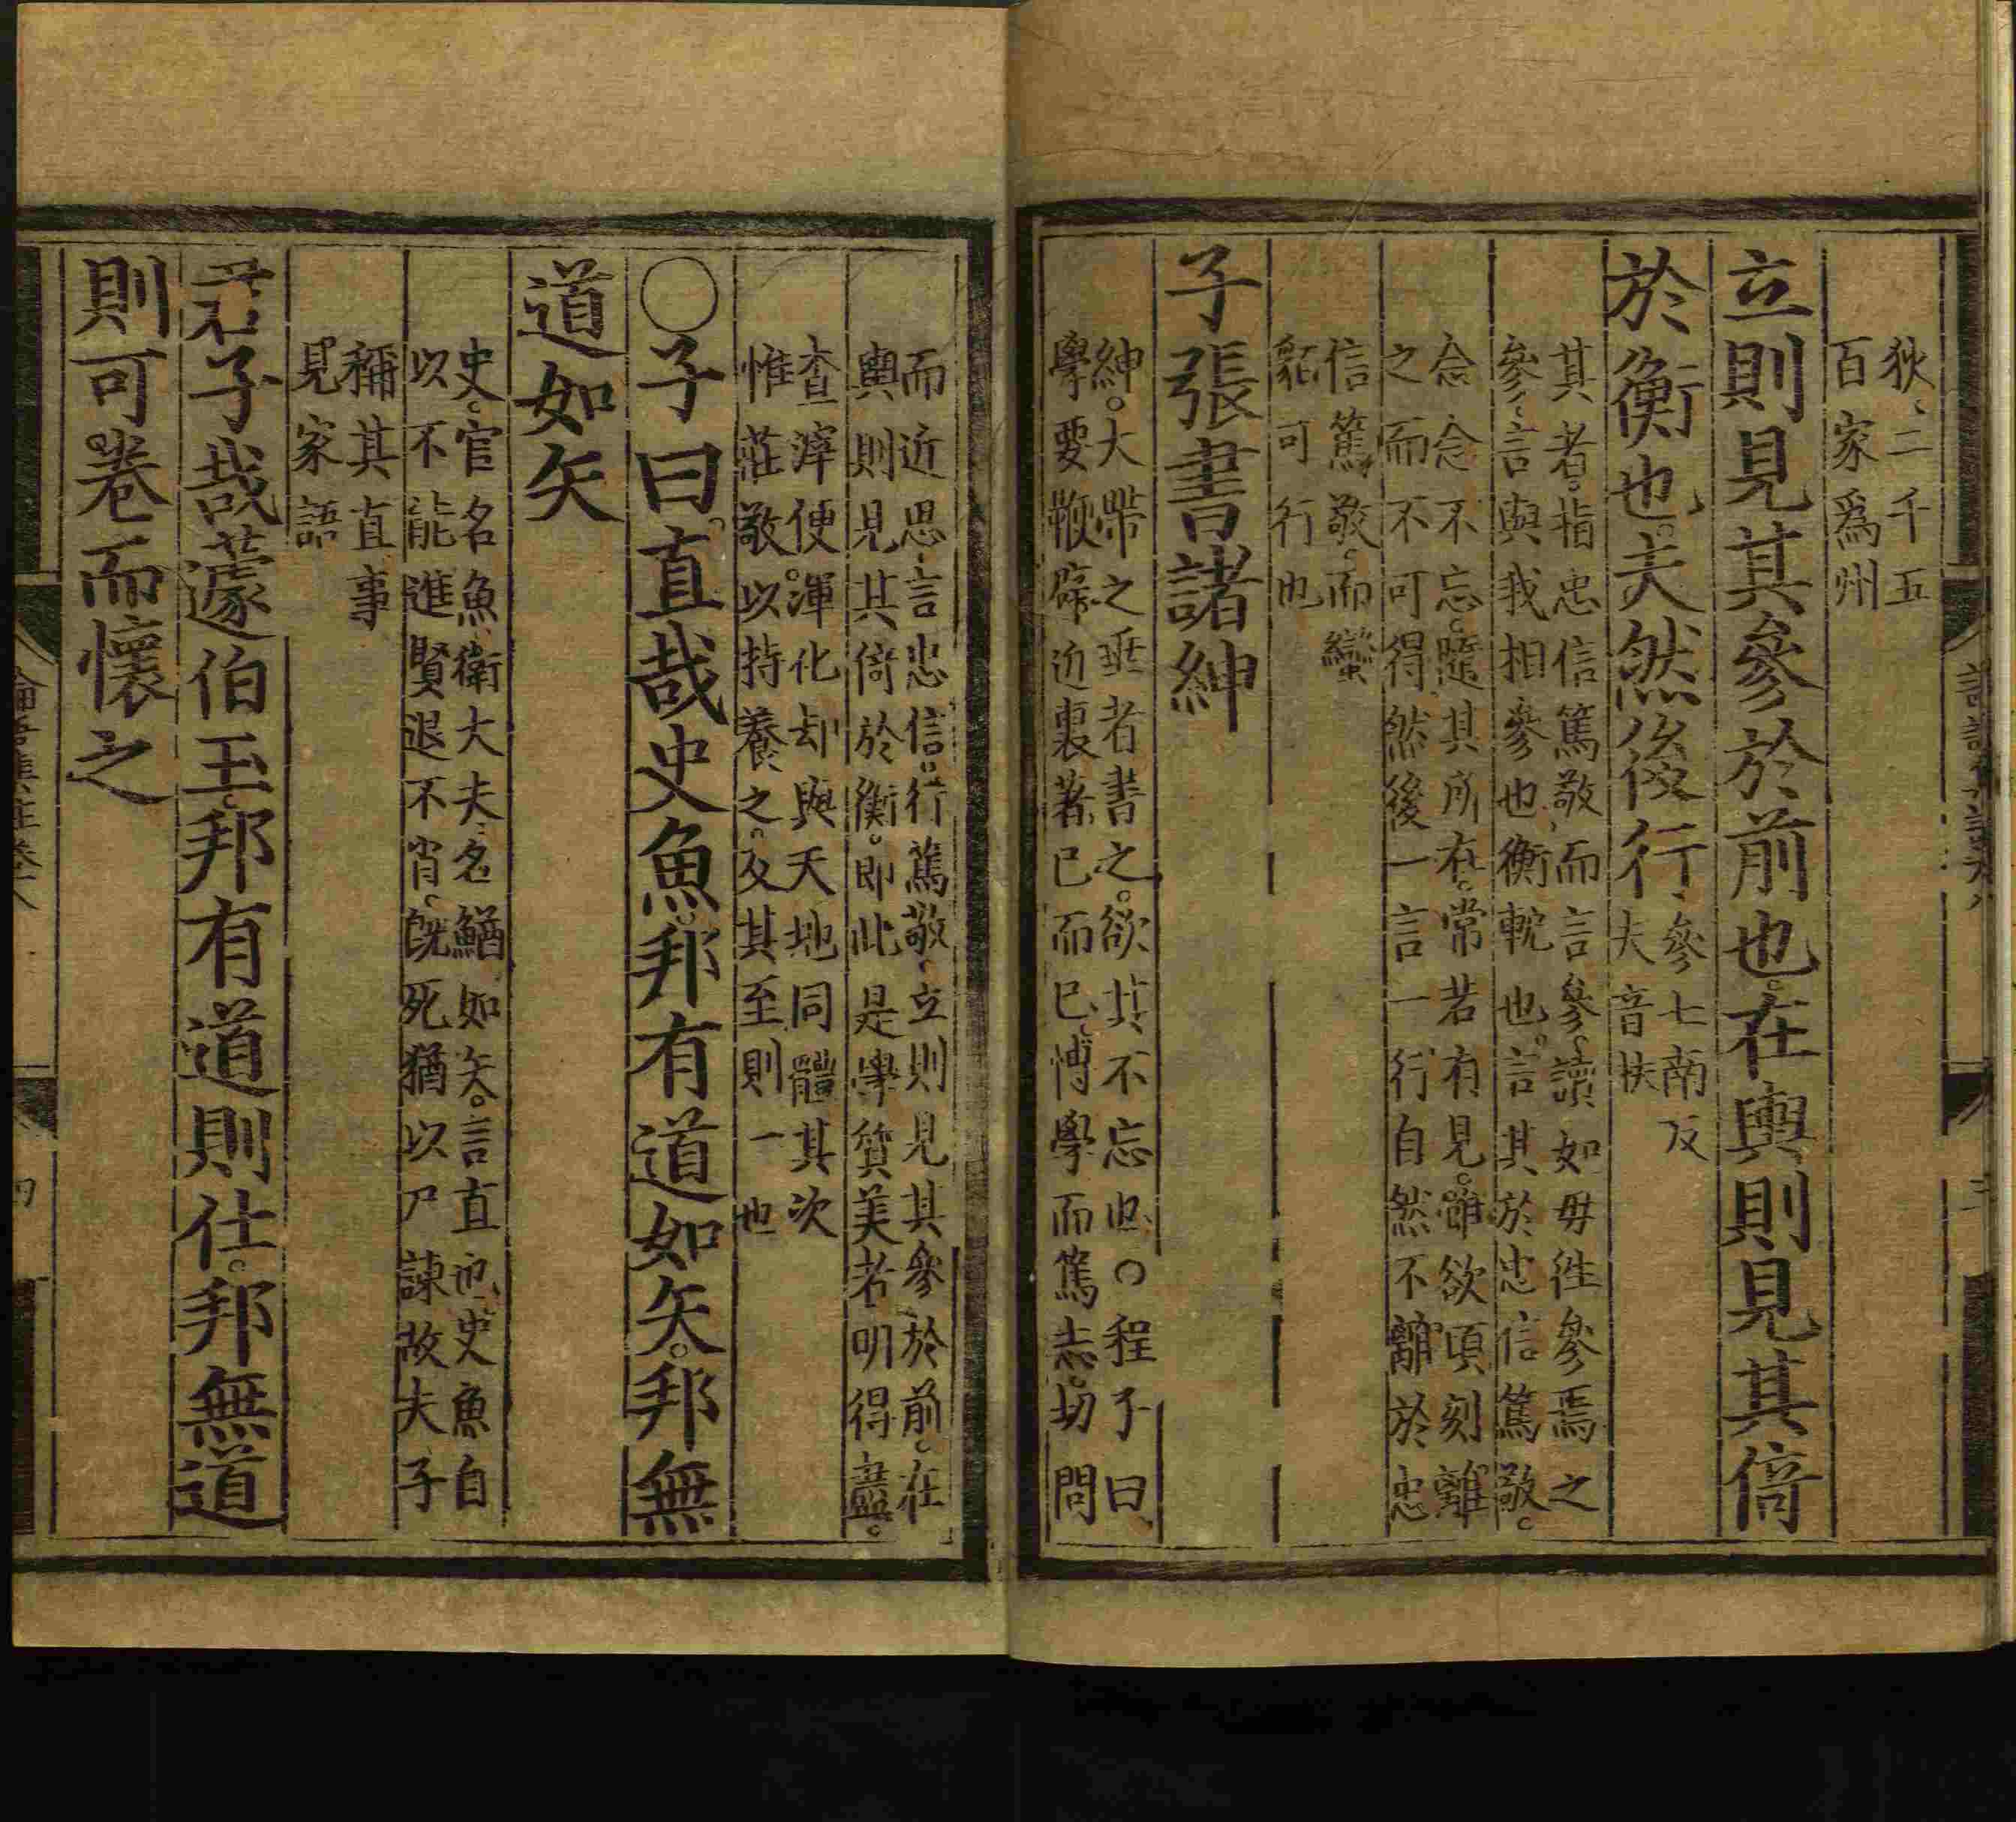 狄二千五
百家爲州
立則見其參於前也在輿則見其倚
於衡也夫然後行
參七南反
夫音扶
其者指忠信篤敬而言參讀如毋往參焉之
參言與我相參也衡軶也言其於忠信篤敬
念念不忘隨其所在常若有見雖欲頃刻離
之而不可得然後一言一行自然不離於忠
信篤敬而蠻
貊可行也
子張書諸紳
紳大帶之垂者書之欲其不忘也○程子曰
學要鞭辟近裏著已而已博學而篤志切問
而近思言忠信行篤敬立則見其參於前在
輿則見其倚於衡即此是學質美者明得盡
查滓便渾化却與天地同體其次
惟莊敬以持養之及其至則一也
○子曰直哉史魚邦有道如矢邦無
道如矢
史官名魚衛大夫名鰌如矢言直也史魚自
以不能進賢退不肖旣死猶以尸諫故夫子
稱其直事
見家語
君子哉蘧伯玉邦有道則仕邦無道
則可卷而懷之